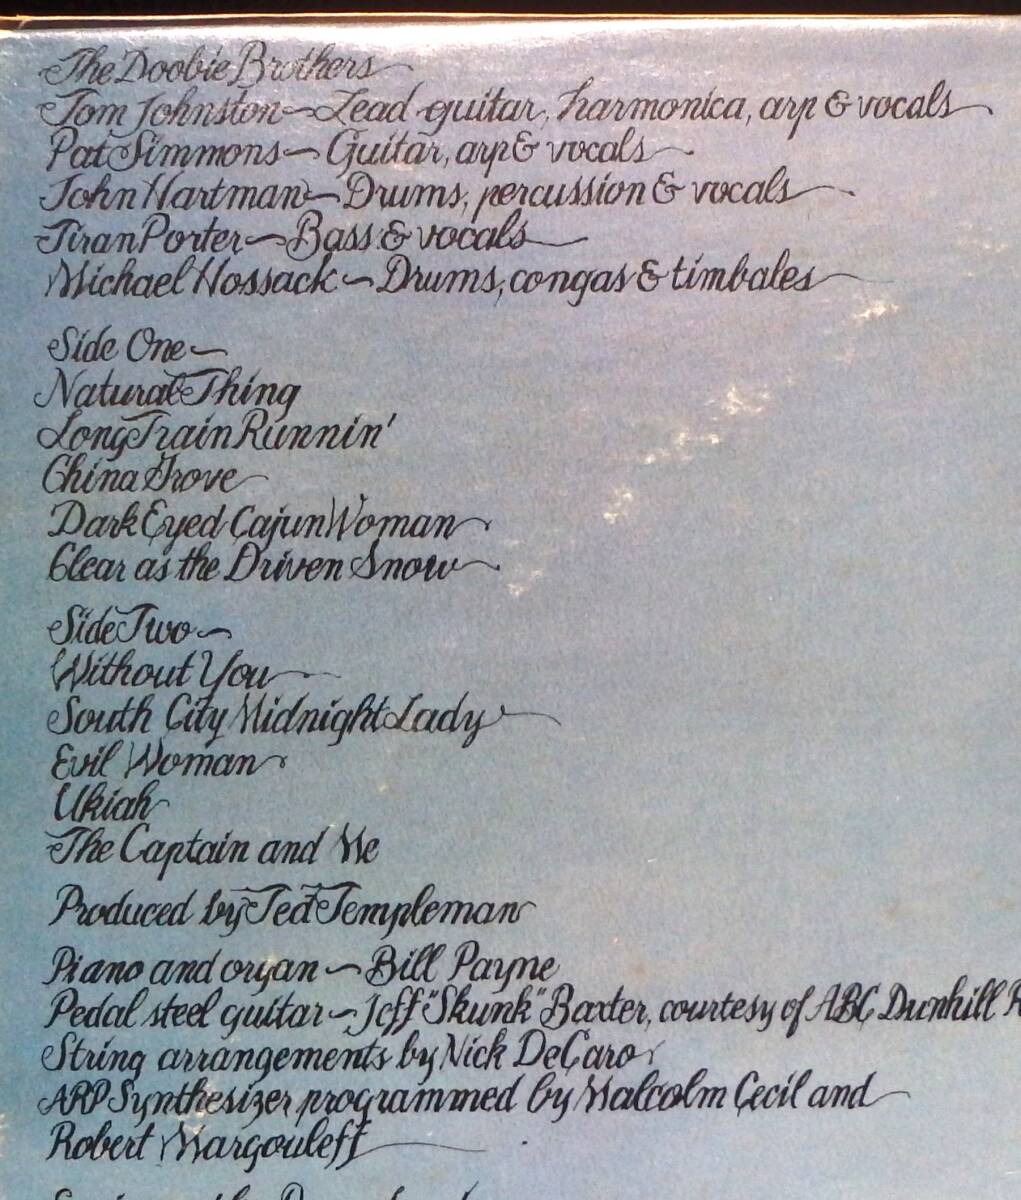 The Doobie Brothers
Tom Johnston~Lead guitar, harmonica, arp & vocals
Pat Simmons~Guitar, arp & vocals
John Hartman~Drums, percussion & vocals
Tiran Porter~Bass & vocals
Michael Hossack~Drums, congas & timbales
Side One~
Natural Thing
Long Train Runnin'
China Grove
Dark Eyed Cajun Woman
Clear as the Driven Snow
Side Two~
Without You
South City Midnight Lady
Evil Woman
Ukiah
The Captain and Me
Produced by Ted Templeman
Piano and organ~Bill Payne
Pedal steel guitar~Jeff "Skunk" Baxter, courtesy of ABC Dunhill
String arrangements by Nick DeCaro
ARP Synthesizer programmed by Malcolm Cecil and
Robert Margouleff